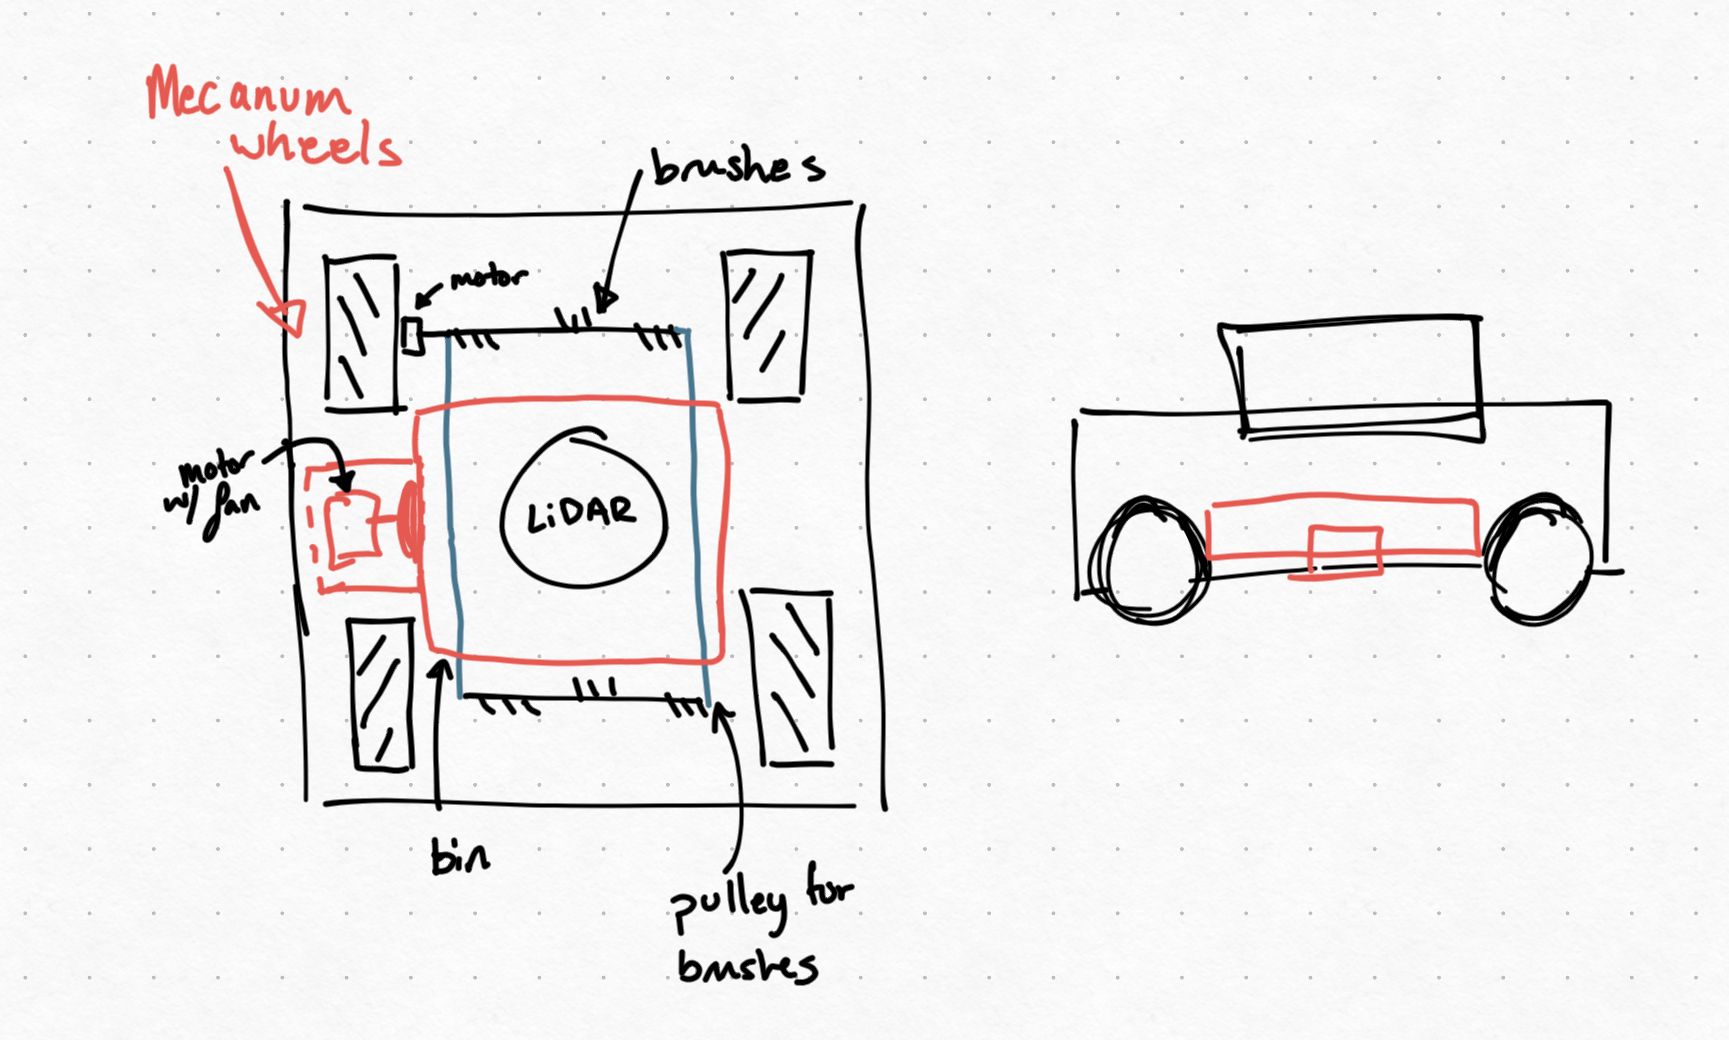 Mecanum
wheels
brushes
motor
motor
w/ fan
LiDAR
bin
pulley for
brushes